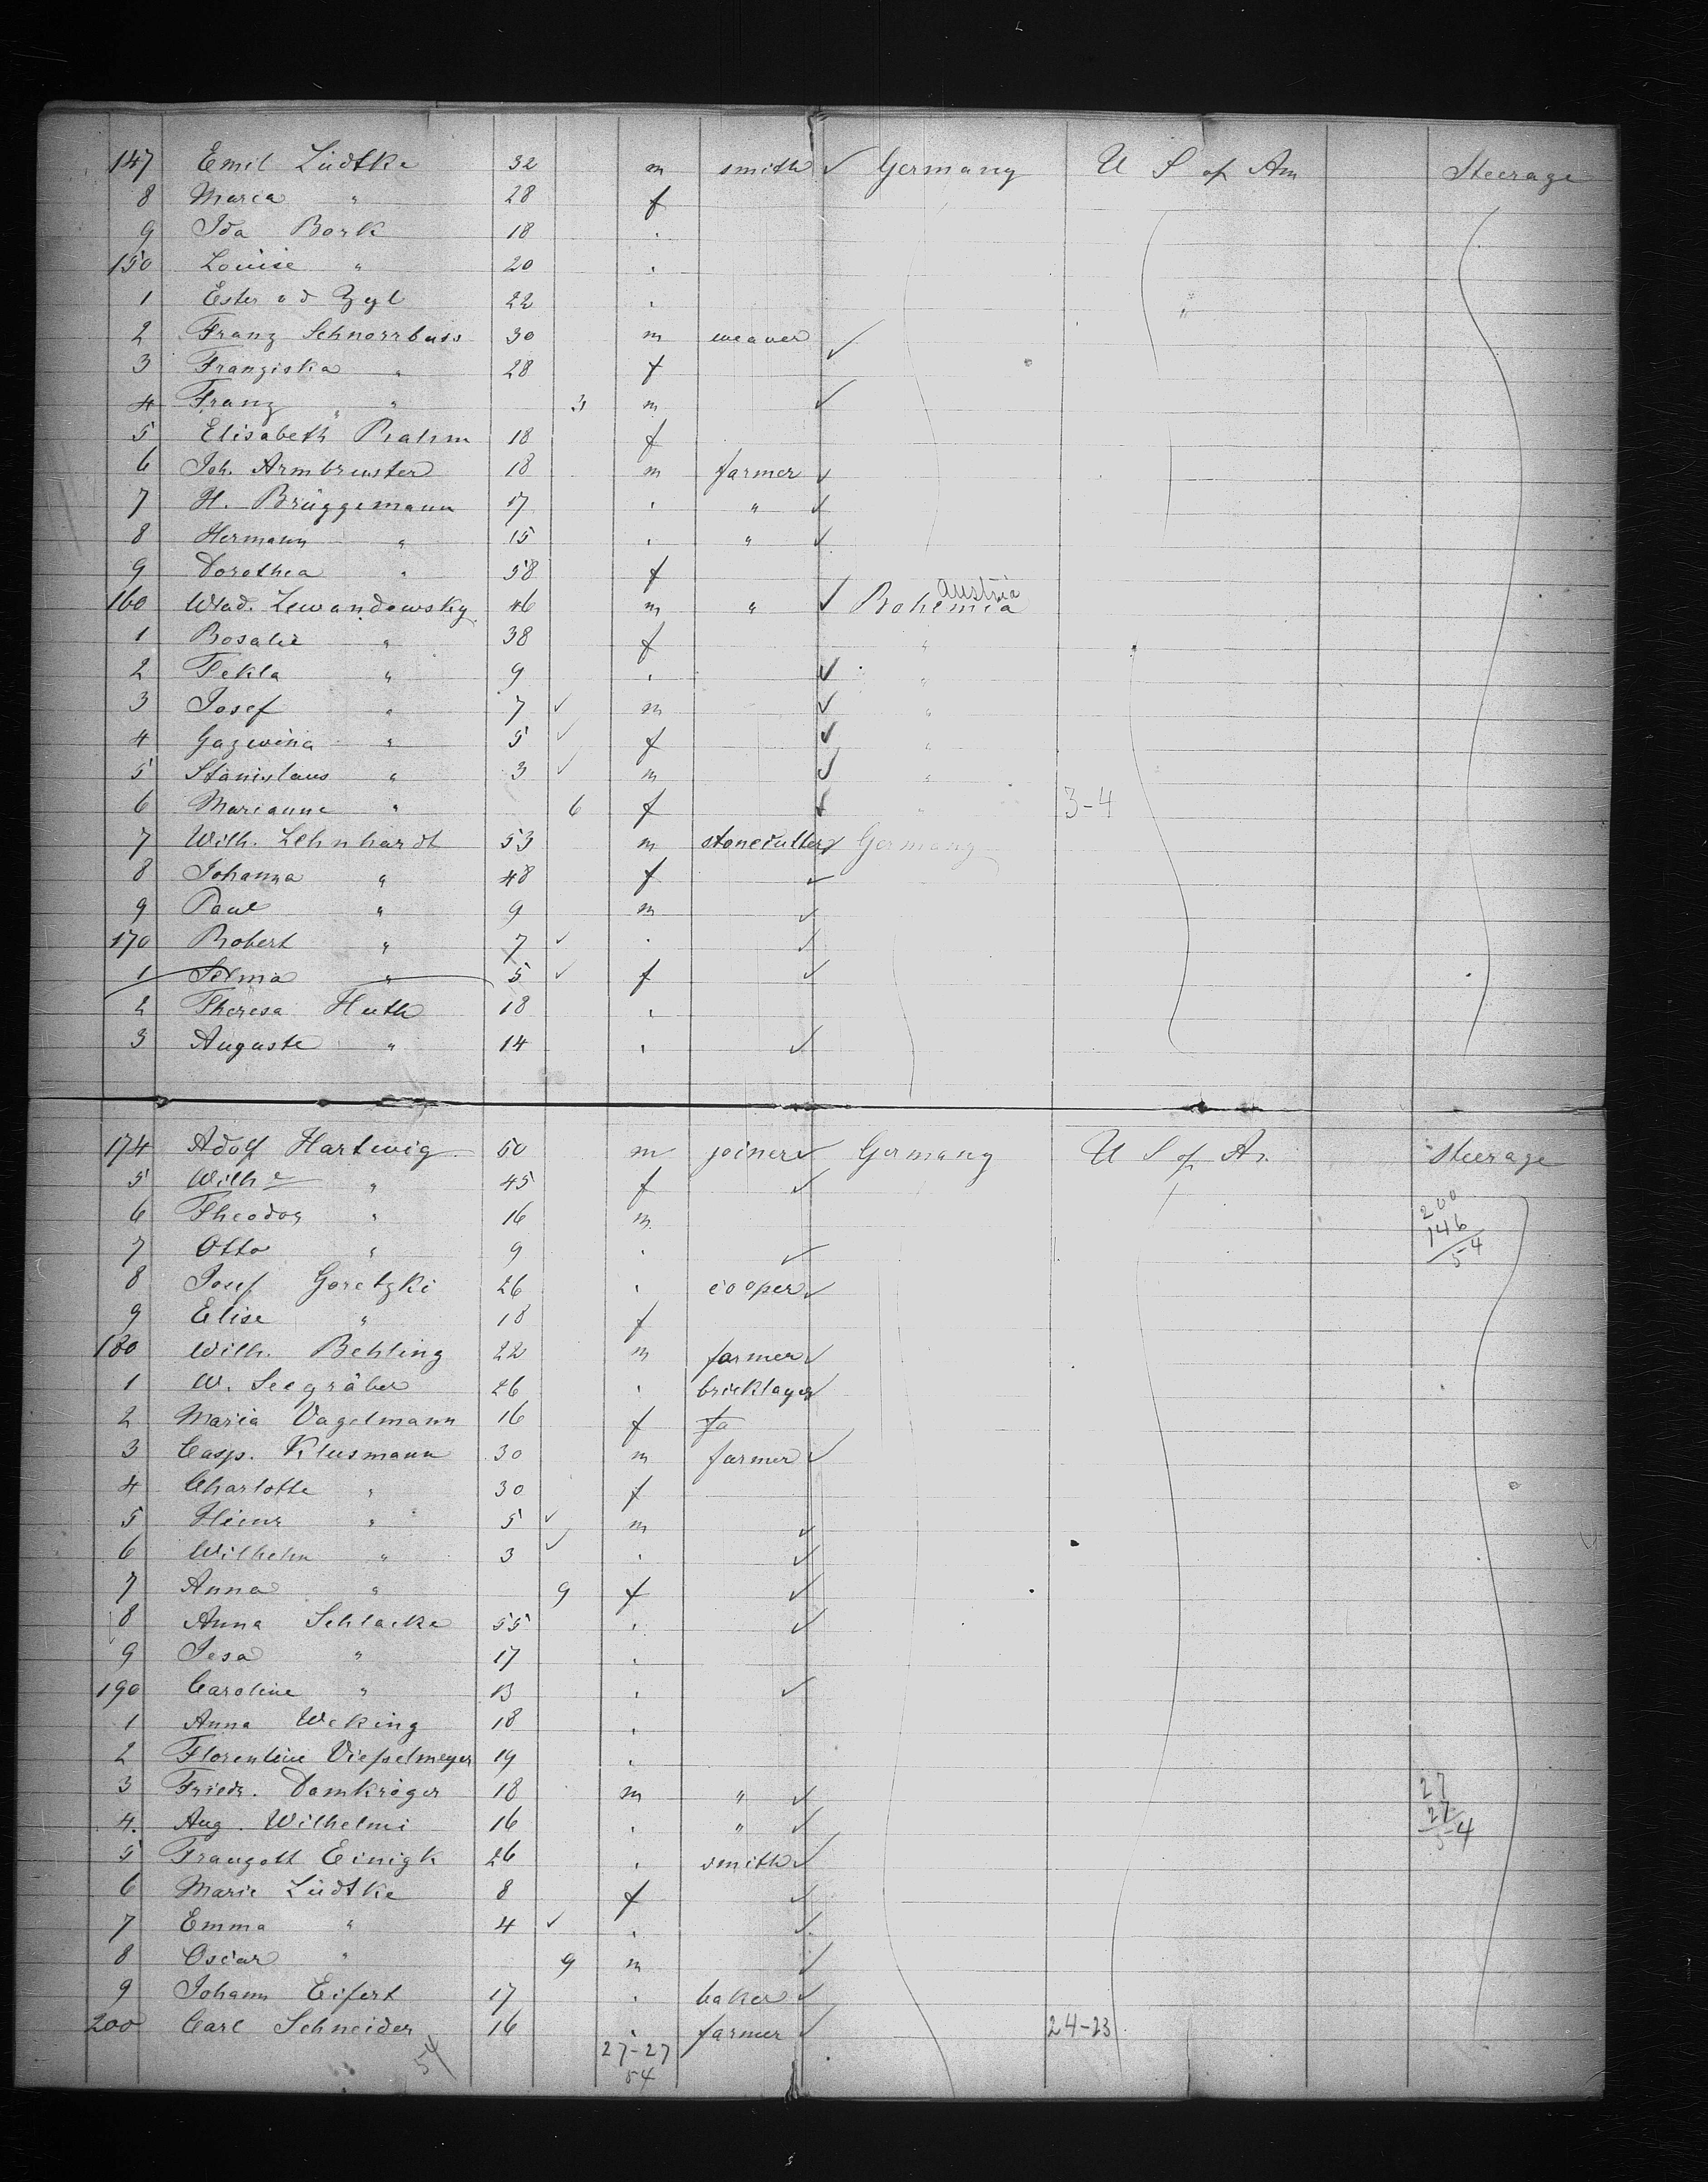 147 Emil Lüdtke 32 m smith ✓ Germany U S of Am Steerage
8 Maria " 28 f
9 Ida Bork 18 "
150 Louise " 20 "
1 Ester v d Zyl 22 " "
2 Franz Schnorrbuss 30 m weaver ✓
3 Franziska " 28 f
4 Franz " 3 m ✓
5 Elisabeth Prahm 18 f
6 Joh. Armbruster 18 m farmer ✓
7 H. Brüggemann 17 " " ✓
8 Hermann " 15 " " ✓
9 Dorothea " 58 f
Austria
160 Wlad. Lewandowsky 46 m " ✓ Bohemia
1 Rosalie " 38 f "
2 Tekla " 9 " ✓ "
3 Josef " 7 ✓ m ✓ "
4 Gazwina " 5 ✓ f ✓ "
5 Stanislaus " 3 ✓ m ✓ "
6 Marianne " 6 f ✓ " 3-4
7 Wilh. Lehnhardt 53 m stonecutter ✓ Germany
8 Johanna " 48 f ✓
9 Paul " 9 m ✓
170 Robert " 7 ✓ " ✓
1 Selma " 5 ✓ f ✓
2 Theresa Huth 18 "
3 Auguste " 14 " ✓
174 Adolf Hartwig 50 m joiner ✓ Germany U S of Am. Steerage
5 Wilhe " 45 f ✓
6 Theodor " 16 m 200
146
7 Otto " 9 " ✓ 54
8 Josef Goretzki 26 " cooper ✓
9 Elise " 18 f
180 Wilh. Behling 22 m farmer ✓
1 W. Seegräber 26 " bricklayer ✓
2 Maria Vagelmann 16 f fa
3 Casp. Klusmann 30 m farmer ✓
4 Charlotte " 30 f
5 Heinr " 5 ✓ m ✓
6 Wilhelm " 3 ✓ " ✓
7 Anna " 9 f ✓
8 Anna Schlacke 55 " ✓
9 Jesa " 17 "
190 Caroline " 13 " ✓
1 Anna Weking 18 "
2 Florentine Viepelmeyer 19 "
3 Friedr. Damkröger 18 m " ✓ 27
27
4. Aug. Wilhelmi 16 " " ✓ 54
5 Traugott Einigk 26 " smith ✓
6 Marie Lüdtke 8 f ✓
7 Emma " 4 ✓ " ✓
8 Oscar " 9 m ✓
9 Johann Eifert 17 " baker ✓
200 Carl Schneider 16 " farmer ✓ 24-23
54 27-27
54